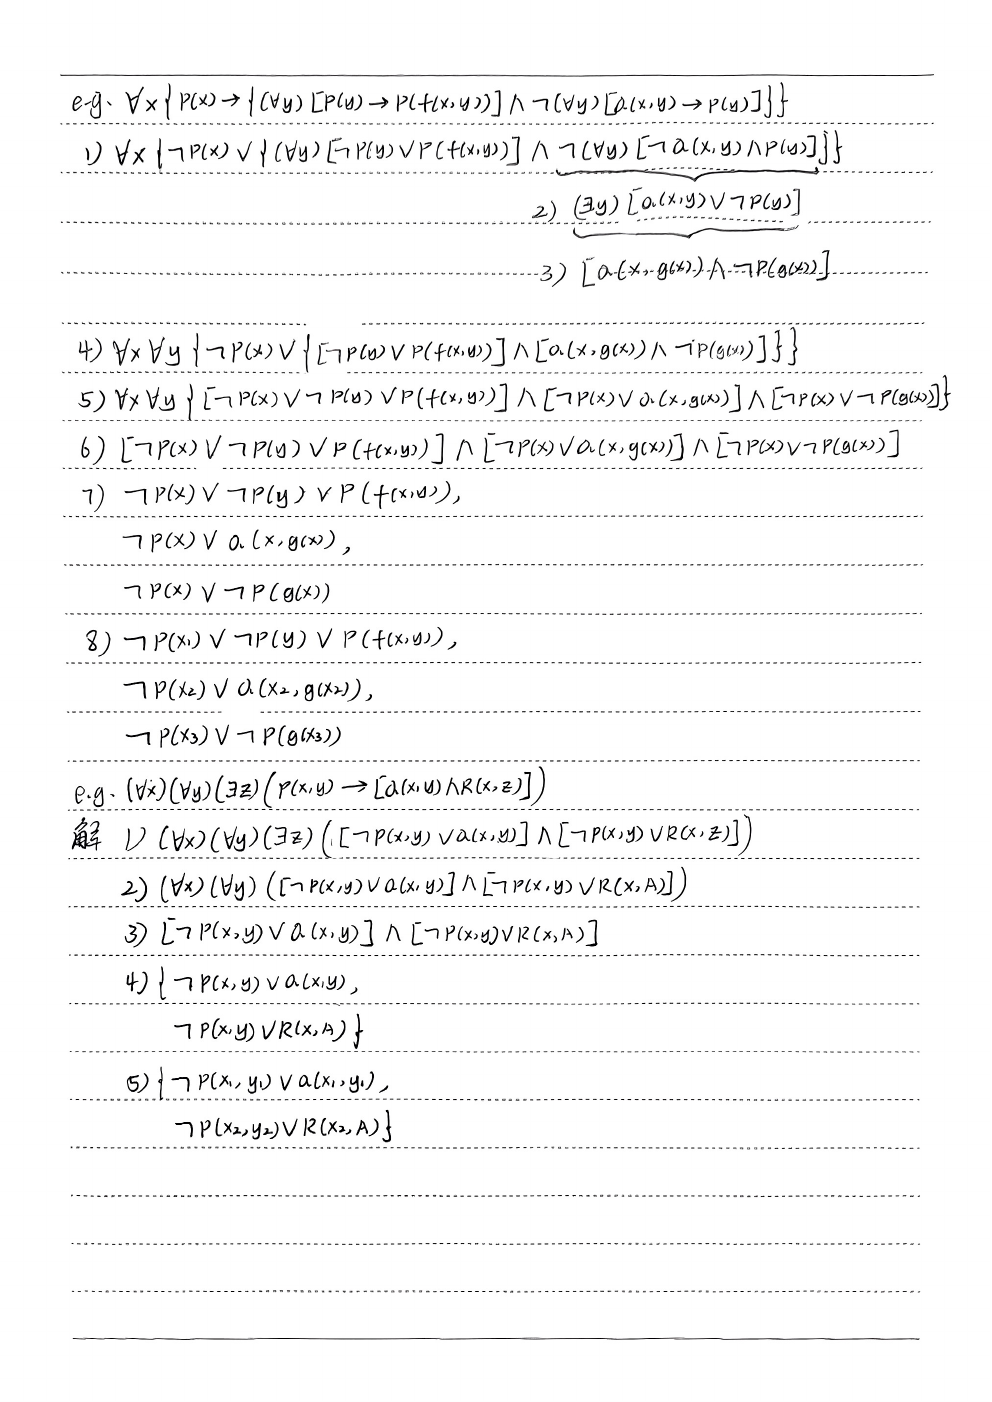 e.g. ∀x{P(x)→{(∀y)[P(y)→P(f(x,y))]∧¬(∀y)[Q(x,y)→P(y)]}}
1) ∀x{¬P(x)∨{(∀y)[¬P(y)∨P(f(x,y))]∧¬(∀y)[¬Q(x,y)∧P(y)]}}
2) (∃y)[Q(x,y)∨¬P(y)]
3) [Q(x,g(x))∧¬P(g(x))]
4) ∀x∀y{¬P(x)∨{[¬P(y)∨P(f(x,y))]∧[Q(x,g(x))∧¬P(g(x))]}}
5) ∀x∀y{[¬P(x)∨¬P(y)∨P(f(x,y))]∧[¬P(x)∨Q(x,g(x))]∧[¬P(x)∨¬P(g(x))]}
6) [¬P(x)∨¬P(y)∨P(f(x,y))]∧[¬P(x)∨Q(x,g(x))]∧[¬P(x)∨¬P(g(x))]
7) ¬P(x)∨¬P(y)∨P(f(x,y)),
¬P(x)∨Q(x,g(x)),
¬P(x)∨¬P(g(x))
8) ¬P(x₁)∨¬P(y)∨P(f(x,y)),
¬P(x₂)∨Q(x₂,g(x₂)),
¬P(x₃)∨¬P(g(x₃))
e.g. (∀x)(∀y)(∃z)(P(x,y)→[Q(x,y)∧R(x,z)])
解 1) (∀x)(∀y)(∃z)([¬P(x,y)∨Q(x,y)]∧[¬P(x,y)∨R(x,z)])
2) (∀x)(∀y)([¬P(x,y)∨Q(x,y)]∧[¬P(x,y)∨R(x,A)])
3) [¬P(x,y)∨Q(x,y)]∧[¬P(x,y)∨R(x,A)]
4) {¬P(x,y)∨Q(x,y),
¬P(x,y)∨R(x,A)}
5) {¬P(x₁,y₁)∨Q(x₁,y₁),
¬P(x₂,y₂)∨R(x₂,A)}